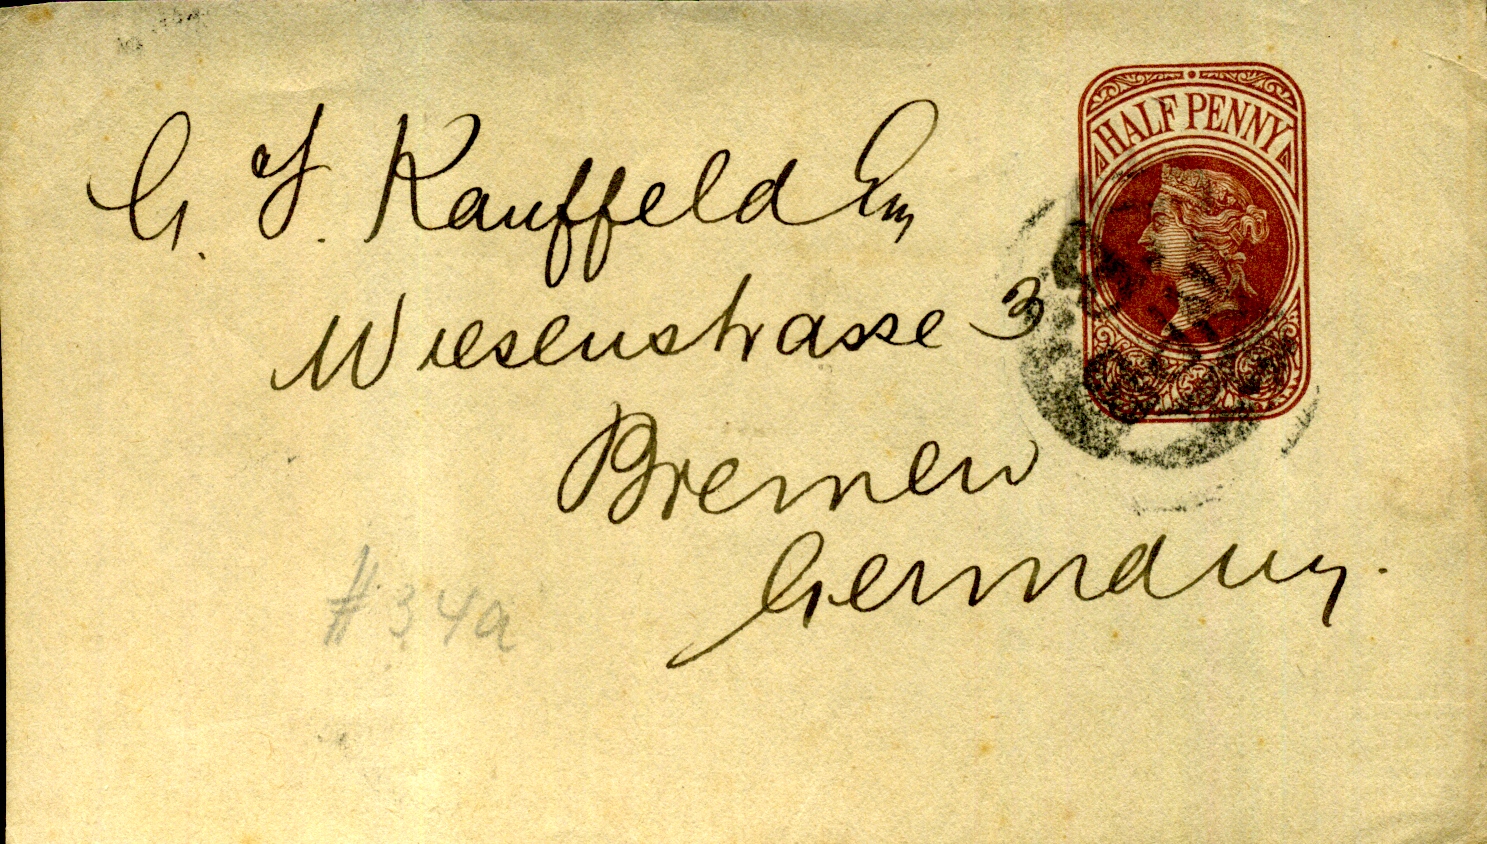 HALF PENNY
G. F. Kauffeld Esq
Wiesenstrasse 3
Bremen
Germany.
#34a